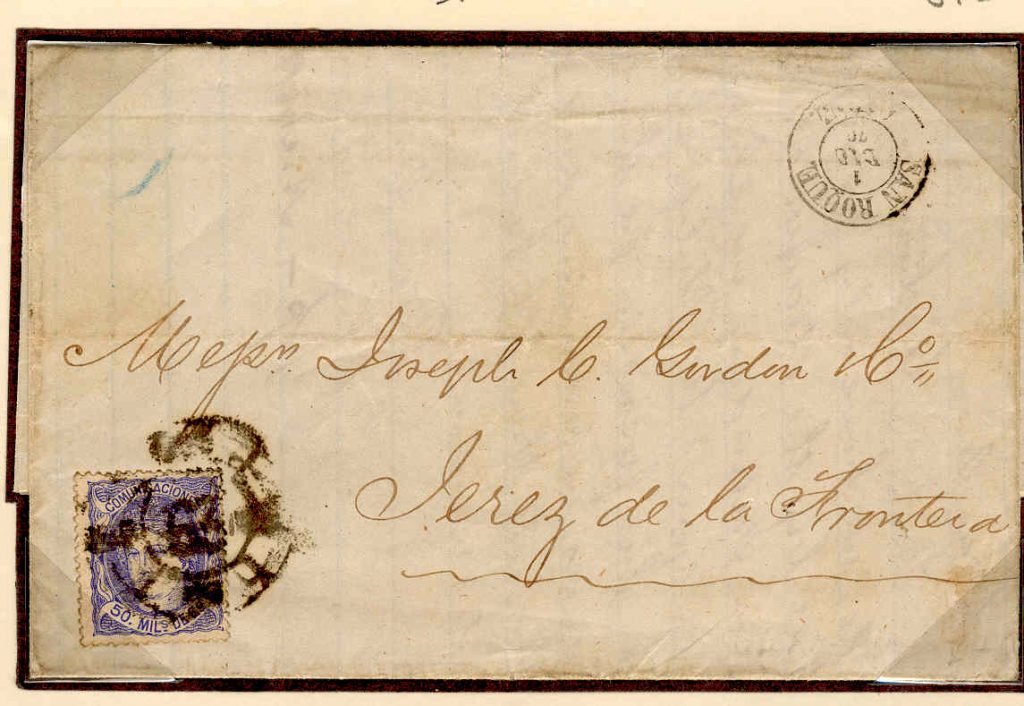 SAN ROQUE
1
DIC
70
Messrs Joseph C. Gordon & Co
Jerez de la Frontera
COMUNICACIONES
50. MILS DE